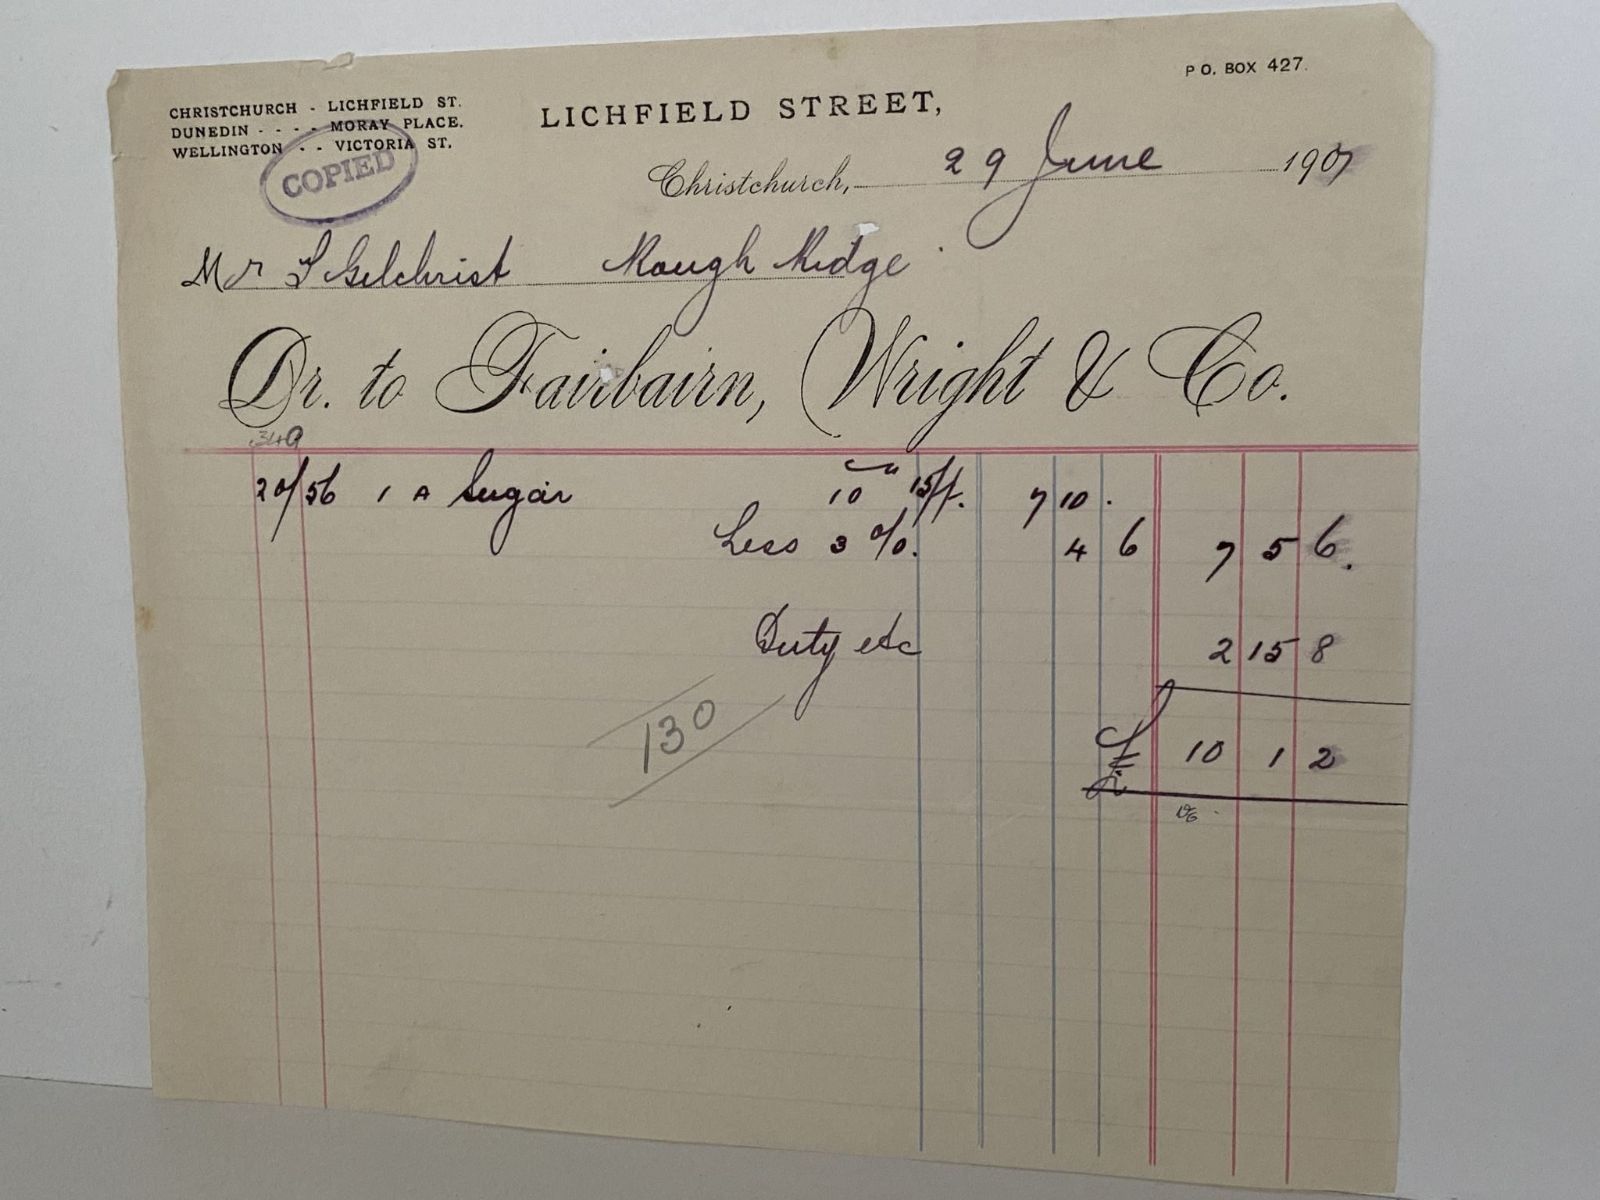 P O. BOX 427.
CHRISTCHURCH - LICHFIELD ST.
DUNEDIN - - - - MORAY PLACE.
WELLINGTON - - VICTORIA ST.
COPIED
LICHFIELD STREET,
Christchurch, 29 June 1907
Mr Gilchrist Rough Ridge
Dr. to Fairbairn, Wright & Co.
349
20/56 1 A Sugar 10 15/ 7 10 .
Less 3 %. 4 6 7 5 6.
Duty etc 2 15 8
130
£ 10 1 2